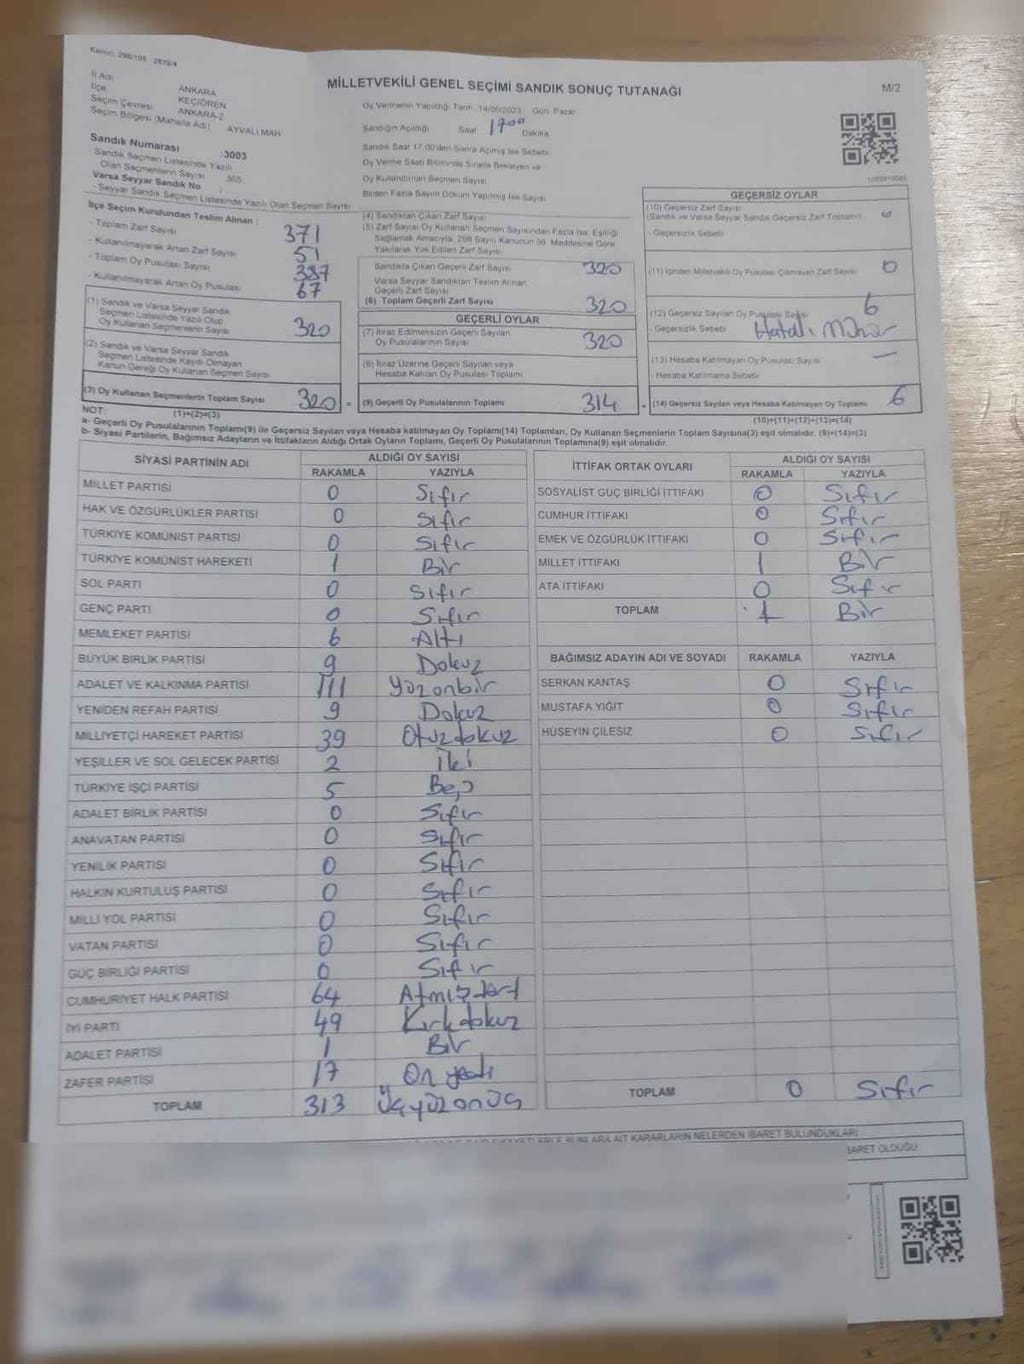 Kanun: 298/105 - 2839/4
MİLLETVEKİLİ GENEL SEÇİMİ SANDIK SONUÇ TUTANAĞI
M/2
İl Adı ANKARA
İlçe KEÇİÖREN
Seçim Çevresi ANKARA-2
Seçim Bölgesi (Mahalle Adı) AYVALI MAH
Sandık Numarası :3003
Sandık Seçmen Listesinde Yazılı
Olan Seçmenlerin Sayısı 365
Varsa Seyyar Sandık No :
Seyyar Sandık Seçmen Listesinde Yazılı Olan Seçmen Sayısı
Oy Vermenin Yapıldığı Tarih 14/05/2023 Gün Pazar
Sandığın Açıldığı Saat 17 00 Dakika
Sandık Saat 17.00'den Sonra Açılmış İse Sebebi
Oy Verme Saati Bitiminde Sırada Bekleyen ve
Oy Kullandırılan Seçmen Sayısı
Birden Fazla Sayım Döküm Yapılmış İse Sayısı
İlçe Seçim Kurulundan Teslim Alınan :
- Toplam Zarf Sayısı 371
- Kullanılmayarak Artan Zarf Sayısı 51
- Toplam Oy Pusulası Sayısı 387
- Kullanılmayarak Artan Oy Pusulası 67
(1) Sandık ve Varsa Seyyar Sandık
Seçmen Listesinde Yazılı Olup
Oy Kullanan Seçmenlerin Sayısı 320
(2) Sandık ve Varsa Seyyar Sandık
Seçmen Listesinde Kayıtlı Olmayan
Kanun Gereği Oy Kullanan Seçmen Sayısı
(3) Oy Kullanan Seçmenlerin Toplam Sayısı 320
(1)+(2)=(3)
(4) Sandıktan Çıkan Zarf Sayısı
(5) Zarf Sayısı Oy Kullanan Seçmen Sayısından Fazla İse, Eşitliği
Sağlamak Amacıyla, 298 Sayılı Kanunun 98. Maddesine Göre
Yakılarak Yok Edilen Zarf Sayısı
Sandıkta Çıkan Geçerli Zarf Sayısı 320
Varsa Seyyar Sandıktan Teslim Alınan
Geçerli Zarf Sayısı
(6) Toplam Geçerli Zarf Sayısı 320
GEÇERLİ OYLAR
(7) İtiraz Edilmeksizin Geçerli Sayılan
Oy Pusulalarının Sayısı 320
(8) İtiraz Üzerine Geçerli Sayılan veya
Hesaba Katılan Oy Pusulası Toplamı
= (9) Geçerli Oy Pusulalarının Toplamı 314
GEÇERSİZ OYLAR
(10) Geçersiz Zarf Sayısı
(Sandık ve Varsa Seyyar Sandık Geçersiz Zarf Toplamı)
- Geçersizlik Sebebi
(11) İçinden Milletvekili Oy Pusulası Çıkmayan Zarf Sayısı 0
(12) Geçersiz Sayılan Oy Pusulası Sayısı 6
- Geçersizlik Sebebi Hatalı Mühür
(13) Hesaba Katılmayan Oy Pusulası Sayısı —
- Hesaba Katılmama Sebebi
(14) Geçersiz Sayılan veya Hesaba Katılmayan Oy Toplamı 6
(10)+(11)+(12)+(13)=(14)
NOT:
a- Geçerli Oy Pusulalarının Toplamı(9) ile Geçersiz Sayılan veya Hesaba Katılmayan Oy Toplamı(14) Toplamları, Oy Kullanan Seçmenlerin Toplam Sayısına(3) eşit olmalıdır. (9)+(14)=(3)
b- Siyasi Partilerin, Bağımsız Adayların ve İttifakların Aldığı Ortak Oyların Toplamı, Geçerli Oy Pusulalarının Toplamına(9) eşit olmalıdır.
SİYASİ PARTİNİN ADI ALDIĞI OY SAYISI
RAKAMLA YAZIYLA
MİLLET PARTİSİ 0 Sıfır
HAK VE ÖZGÜRLÜKLER PARTİSİ 0 Sıfır
TÜRKİYE KOMÜNİST PARTİSİ 0 Sıfır
TÜRKİYE KOMÜNİST HAREKETİ 1 Bir
SOL PARTİ 0 Sıfır
GENÇ PARTİ 0 Sıfır
MEMLEKET PARTİSİ 6 Altı
BÜYÜK BİRLİK PARTİSİ 9 Dokuz
ADALET VE KALKINMA PARTİSİ 111 Yüzonbir
YENİDEN REFAH PARTİSİ 9 Dokuz
MİLLİYETÇİ HAREKET PARTİSİ 39 Otuzdokuz
YEŞİLLER VE SOL GELECEK PARTİSİ 2 İki
TÜRKİYE İŞÇİ PARTİSİ 5 Beş
ADALET BİRLİK PARTİSİ 0 Sıfır
ANAVATAN PARTİSİ 0 Sıfır
YENİLİK PARTİSİ 0 Sıfır
HALKIN KURTULUŞ PARTİSİ 0 Sıfır
MİLLİ YOL PARTİSİ 0 Sıfır
VATAN PARTİSİ 0 Sıfır
GÜÇ BİRLİĞİ PARTİSİ 0 Sıfır
CUMHURİYET HALK PARTİSİ 64 Atmışdört
İYİ PARTİ 49 Kırkdokuz
ADALET PARTİSİ 1 Bir
ZAFER PARTİSİ 17 On yedi
TOPLAM 313 Üçyüzonüç
İTTİFAK ORTAK OYLARI ALDIĞI OY SAYISI
RAKAMLA YAZIYLA
SOSYALİST GÜÇ BİRLİĞİ İTTİFAKI 0 Sıfır
CUMHUR İTTİFAKI 0 Sıfır
EMEK VE ÖZGÜRLÜK İTTİFAKI 0 Sıfır
MİLLET İTTİFAKI 1 Bir
ATA İTTİFAKI 0 Sıfır
TOPLAM 1 Bir
BAĞIMSIZ ADAYIN ADI VE SOYADI RAKAMLA YAZIYLA
SERKAN KANTAŞ 0 Sıfır
MUSTAFA YİĞİT 0 Sıfır
HÜSEYİN ÇİLESİZ 0 Sıfır
TOPLAM 0 Sıfır
ARA AİT KARARLARIN NELERDEN İBARET BULUNDUKLARI
BARET OLDUĞU